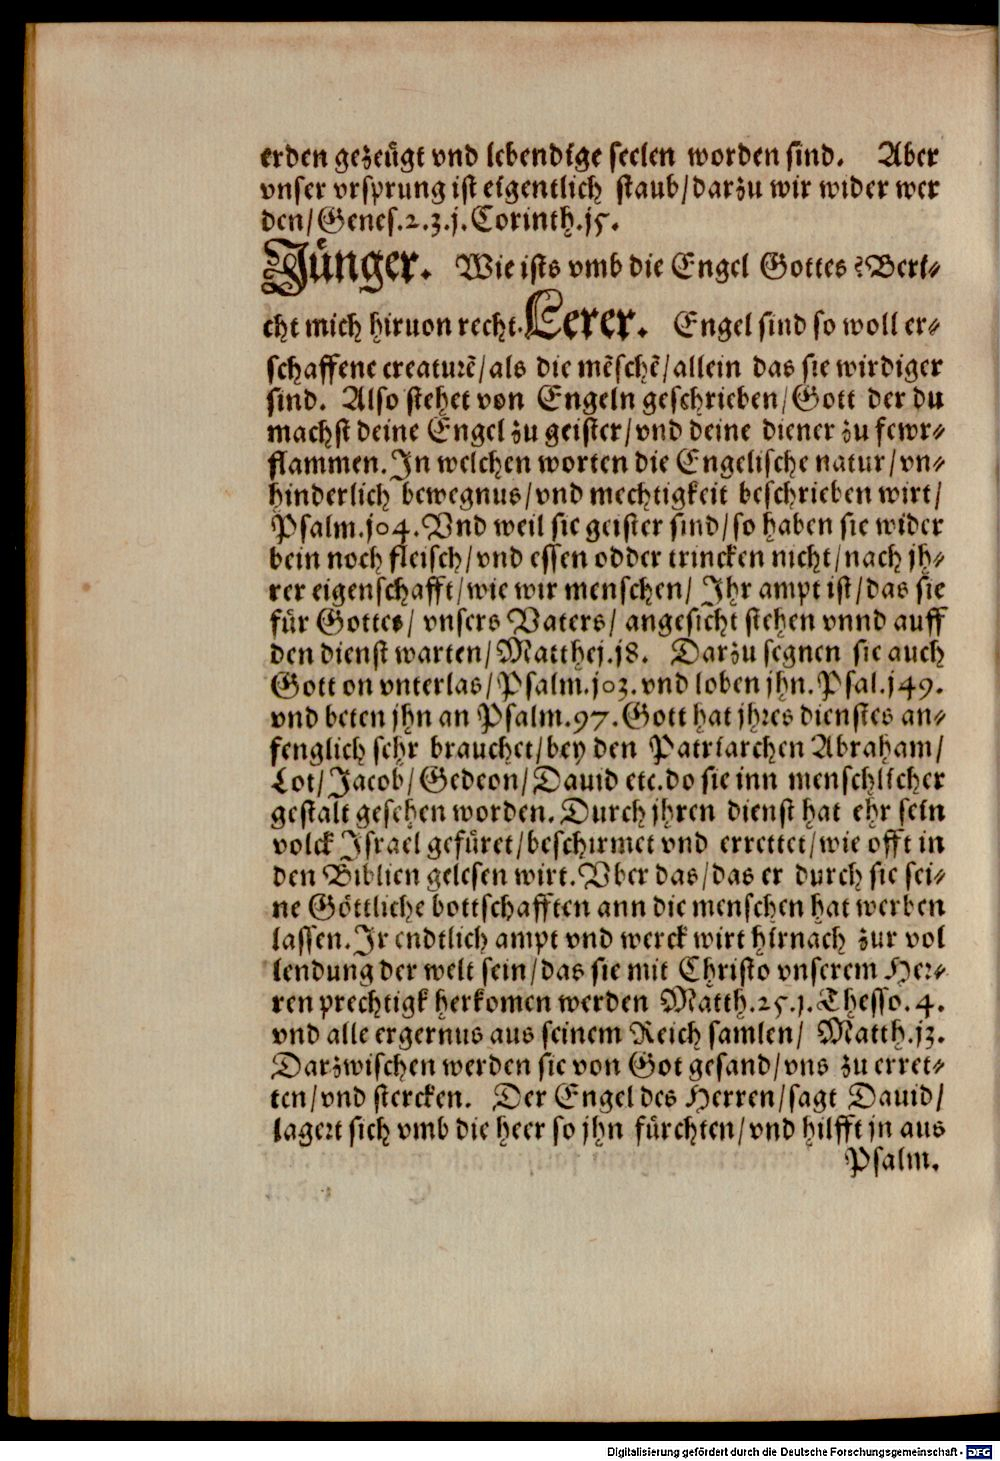 erden gezeůgt vnd lebendige seelen worden sind. Aber
vnser vrsprung ist eigentlich staub/darzu wir wider wer
den/Genes.2.3.j.Corinth.j5.
Jůnger. Wie ists vmb die Engel Gottes? Beri⸗
cht mich hiruon recht. Lerer. Engel sind so woll er⸗
schaffene creaturē/als die mēschē/allein das sie wirdiger
sind. Also stehet von Engeln geschrieben/Gott der du
machst deine Engel zu geister/vnd deine diener zu fewr⸗
flammen. In welchen worten die Engelische natur/vn⸗
hinderlich bewegnus/vnd mechtigkeit beschrieben wirt/
Psalm.j04. Vnd weil sie geister sind/so haben sie wider
bein noch fleisch/vnd essen odder trincken nicht/nach jh⸗
rer eigenschafft/wie wir menschen/ Ihr ampt ist/das sie
fůr Gottes/ vnsers Vaters/ angesicht stehen vnnd auff
den dienst warten/Matthej.j8. Darzu segnen sie auch
Gott on vnterlas/Psalm.j03.vnd loben jhn.Psal.j49.
vnd beten jhn an Psalm.97. Gott hat jhres dienstes an⸗
fenglich sehr brauchet/bey den Patriarchen Abraham/
Lot/Jacob/Gedeon/Dauid etc.do sie inn menschlicher
gestalt gesehen worden. Durch jhren dienst hat ehr sein
volck Israel gefůret/beschirmet vnd errettet/wie offt in
den Biblien gelesen wirt. Vber das/das er durch sie sei⸗
ne Göttliche bottschafften ann die menschen hat werben
lassen. Ir endtlich ampt vnd werck wirt hirnach zur vol
lendung der welt sein/das sie mit Christo vnserem Her⸗
ren prechtigk herkomen werden Matth.25.j.Thesso.4.
vnd alle ergernus aus seinem Reich samlen/ Matth.j3.
Darzwischen werden sie von Got gesand/vns zu erret⸗
ten/vnd stercken. Der Engel des Herren/sagt Dauid/
lagert sich vmb die heer so jhn fůrchten/vnd hilfft jn aus
Psalm.
Digitalisierung gefördert durch die Deutsche Forschungsgemeinschaft - DFG